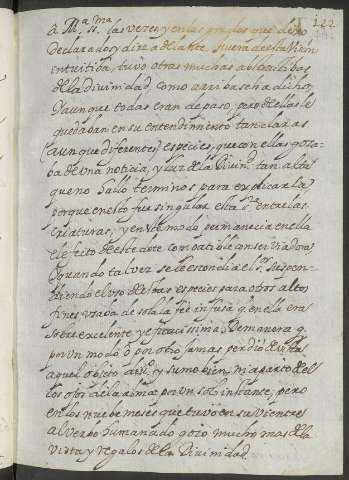 122
â M.ª m.ª SS. las vezes, y en los grados que dexo
declarados y dire adelante. Fuera de esta Vision
intuitiva, tuvo otras muchas abstractibas
de la divinidad, como arriba se ha dicho;
Y aunque todas eran de paso, pero de ellas le
quedaban en su entendimiento tan claras
(aunque diferentes) especies, que con ellas goza-
ba de una noticia, y luz de la Divin.d tan alta
que no hallo terminos para explicarla
porque en esto fue singular esta S.ra entre las
criaturas, y en este modo permanecia en ella
el efecto de este dote compatible con ser Viadora
Y quando tal vez se le escondia el S.r suspen-
diendo el uso de estas especies para otros altos
fines, usaba de sola la fee infusa q. en ella era
sobre excelente y eficacissima. De manera q.
por un modo ò por otro jamas perdio de vista
aquel objeto divi.º y sumo bien, ni aparto de el
los ojos de la alma por un solo instante; pero
en los nuebe meses que tuvo en su vientre
al verbo humanado gozo mucho mas de la
vista y regalos de la Divinidad.